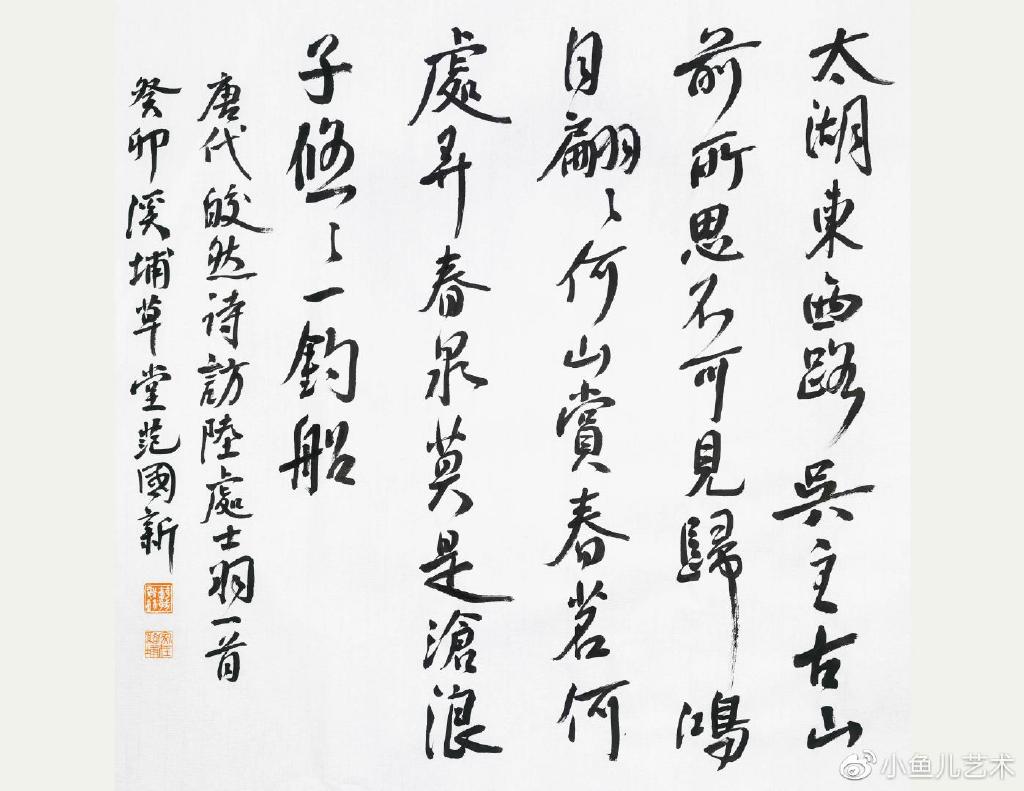 太湖東西路吳主古山
前所思不可見歸鴻
自翩〻何山賞春茗何
處弄春泉莫是滄浪
子悠〻一釣船
唐代皎然诗訪陸處士羽一首
癸卯溪埔草堂范國新
小鱼儿艺术